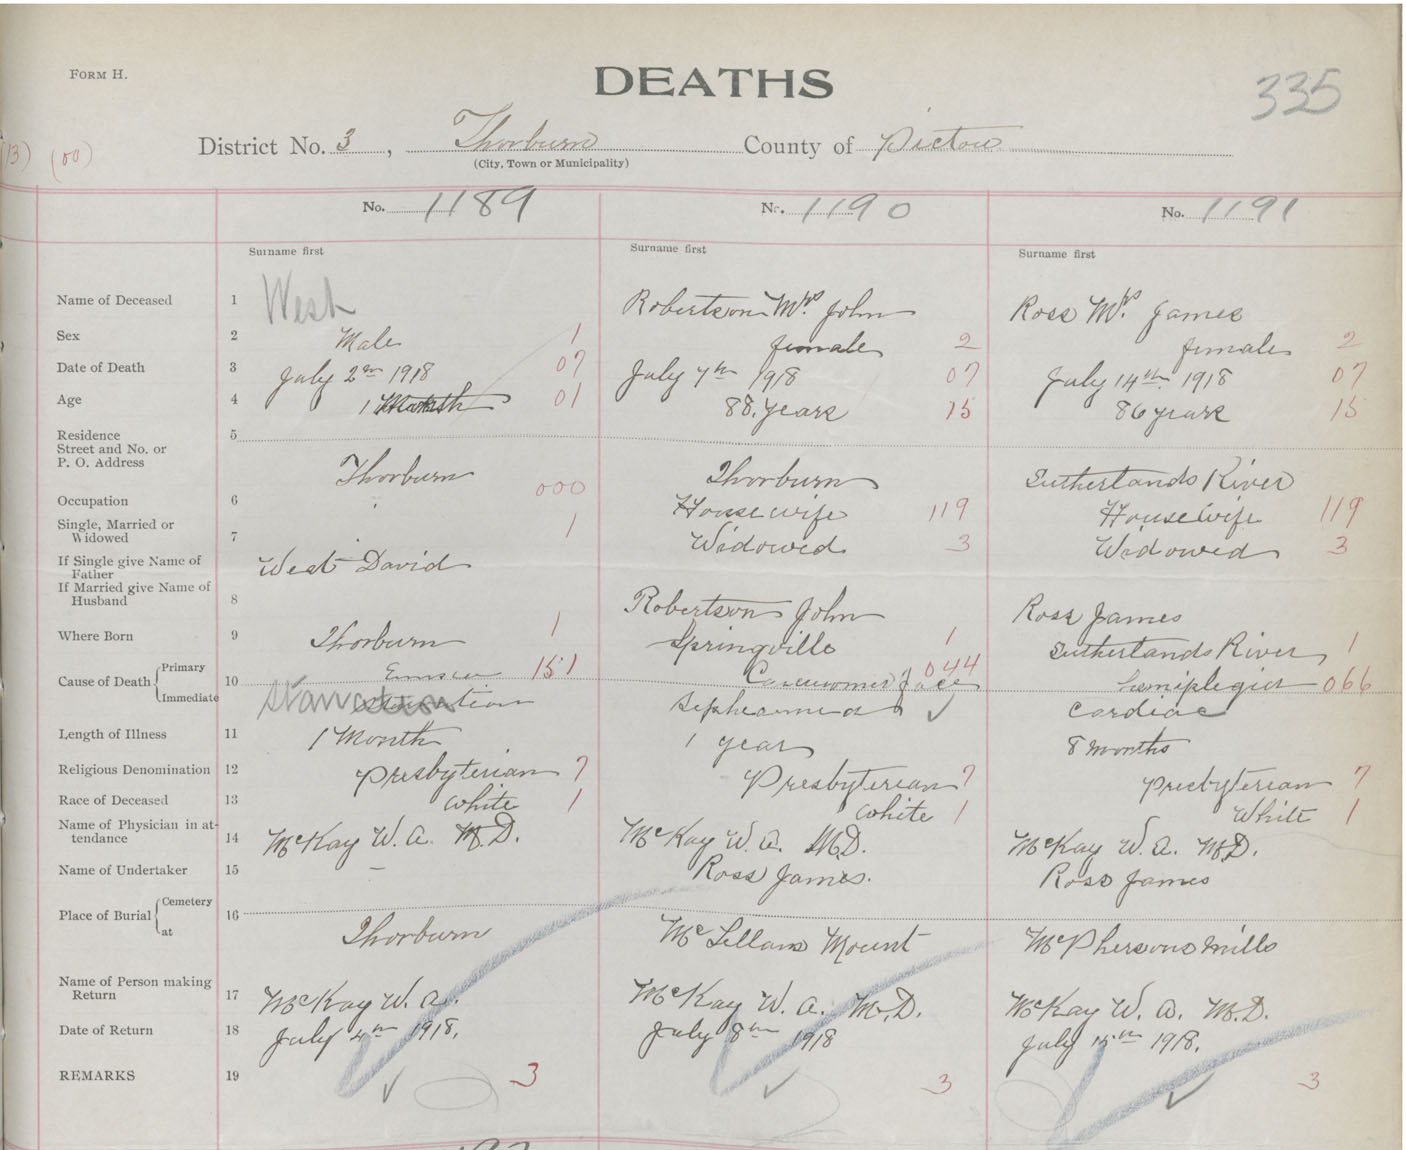 FORM H.
DEATHS
335
(13) (00)
District No. 3, Thorburn County of Pictou
(City, Town or Municipality)
No. 1189 No. 1190 No. 1191
Surname first Surname first Surname first
Name of Deceased 1 West Robertson Mrs. John Ross Mrs. James
Sex 2 Male 1 female 2 female 2
Date of Death 3 July 2nd 1918 07 July 7th 1918 07 July 14th 1918 07
Age 4 1 Month 01 88 years 15 86 years 15
Residence 5
Street and No. or
P. O. Address
Thorburn Thorburn Sutherlands River
Occupation 6 000 Housewife 119 Housewife 119
Single, Married or
Widowed 7 1 Widowed 3 Widowed 3
If Single give Name of
Father West David
If Married give Name of
Husband 8 Robertson John Ross James
Where Born 9 Thorburn 1 Springville 1 Sutherlands River 1
Cause of Death Primary 10 151 044 hemiplegia 066
Immediate starvation cardiac
Length of Illness 11 1 Month 1 year 8 months
Religious Denomination 12 Presbyterian 7 Presbyterian 7 Presbyterian 7
Race of Deceased 13 White 1 White 1 White 1
Name of Physician in at-
tendance 14 McKay W. A. M.D. McKay W. A. M.D. McKay W. A. M.D.
Name of Undertaker 15 — Ross James. Ross James
Place of Burial Cemetery 16
at Thorburn McLellans Mount McPhersons Mills
Name of Person making
Return 17 McKay W. A. McKay W. A. M.D. McKay W. A. M.D.
Date of Return 18 July 4th 1918. July 8th 1918 July 15th 1918.
REMARKS 19 3 3 3